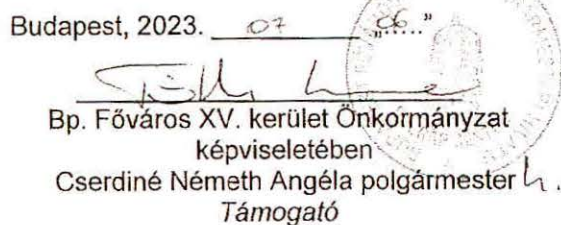 Budapest, 2023. 07 „06.”
Bp. Főváros XV. kerület Önkormányzat
képviseletében
Cserdiné Németh Angéla polgármester h.
Támogató